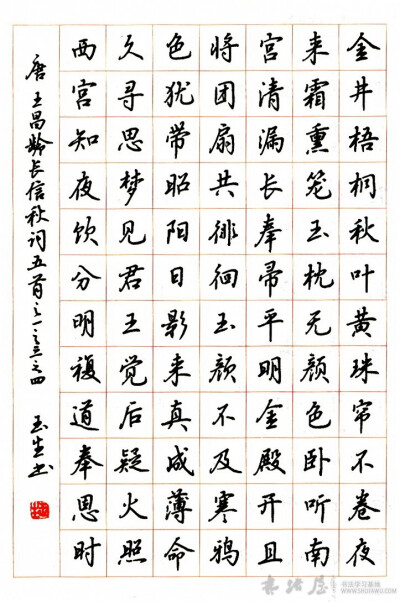 金井梧桐秋叶黄珠帘不卷夜
来霜熏笼玉枕无颜色卧听南
宫清漏长奉帚平明金殿开且
将团扇共徘徊玉颜不及寒鸦
色犹带昭阳日影来真成薄命
久寻思梦见君王觉后疑火照
西宫知夜饮分明複道奉恩时
唐王昌龄长信秋词五首之一之三之四 玉生书
书法屋
书法学习基地
WWW.SHUFAWU.COM